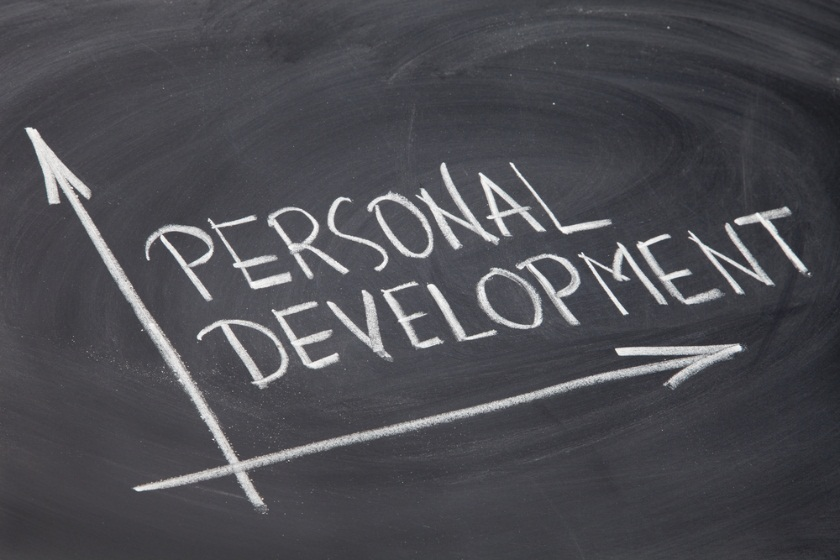 PERSONAL
DEVELOPMENT